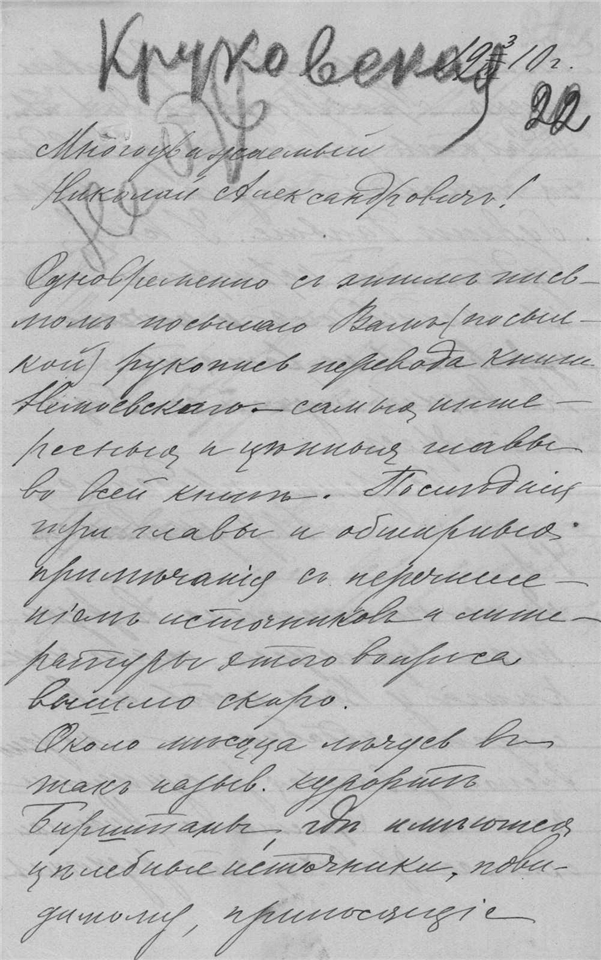 Круковская
19 3/VII 10 г.
22
Многоуважаемый
Николай Александровичъ!
Одновременно съ этимъ пись-
момъ посылаю Вамъ (посыл-
кой) рукопись перевода книги
Немоевскаго – самыя инте-
ресныя и цѣнныя главы
во всей книгѣ. Послѣднія
три главы и обширныя
примѣчанія съ перечисле-
ніемъ источниковъ и лите-
ратуры этого вопроса
вышлю скоро.
Около мѣсяца лѣчусь въ
такъ назыв. курортѣ
Бирштаны, гдѣ имѣются
цѣлебные источники, пови-
димому, приносящіе